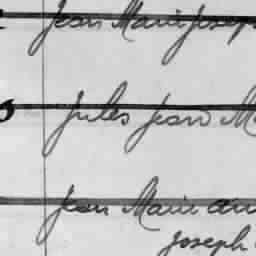 Jean Marie Joseph
Jules Jean
Jean Marie
Joseph